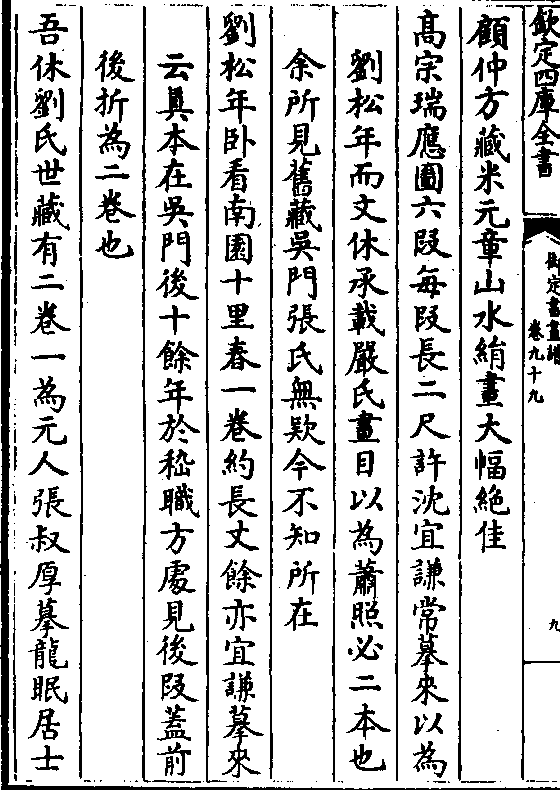 欽定四庫全書
御定書畫譜
卷九十九
九
顧仲方藏米元章山水絹畫大幅絶佳
髙宗瑞應圖六段每段長二尺許沈宜謙常摹來以為
劉松年而文休承載嚴氏畫目以為蕭照必二本也
余所見舊藏吳門張氏無欵今不知所在
劉松年卧看南園十里春一卷約長丈餘亦宜謙摹來
云真本在吳門後十餘年於嵇職方處見後段蓋前
後折為二卷也
吾休劉氏世藏有二卷一為元人張叔厚摹龍眠居士